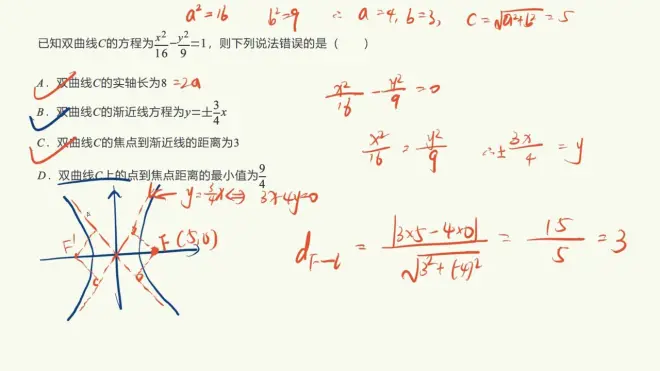 a²=16 b²=9 ∴ a=4, b=3, c=√(a²+b²)=5
已知双曲线C的方程为x²/16-y²/9=1，则下列说法错误的是（　　）
A．双曲线C的实轴长为8 =2a
B．双曲线C的渐近线方程为y=±3/4x
C．双曲线C的焦点到渐近线的距离为3
D．双曲线C上的点到焦点距离的最小值为9/4
x²/16 - y²/9 =0
x²/16 = y²/9 ∴±3x/4 = y
y=3/4x ⇔ 3x-4y=0
F' F (5,0)
d F-l = |3×5-4×0|/√(3²+(-4)²) = 15/5 = 3